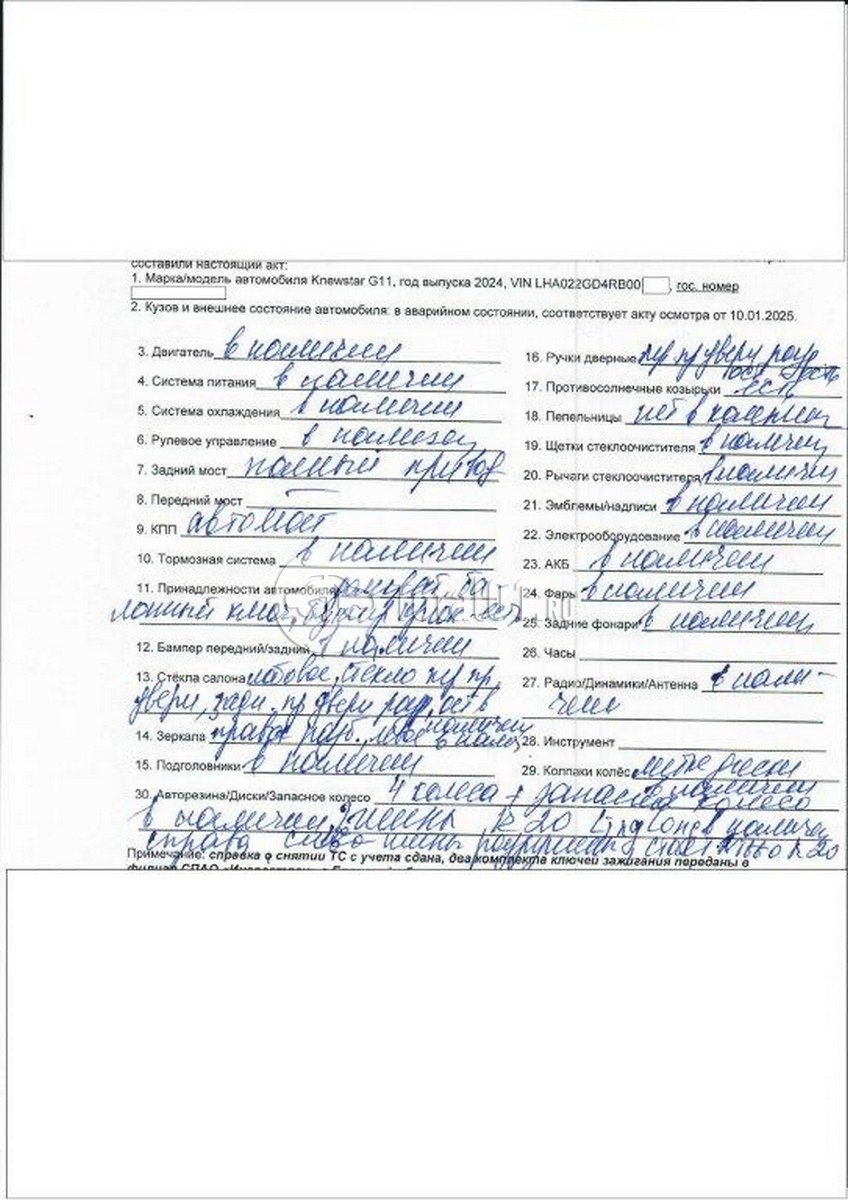 составили настоящий акт:
1. Марка/модель автомобиля Knewstar G11, год выпуска 2024, VIN LHA022GD4RB00 , гос. номер
2. Кузов и внешнее состояние автомобиля: в аварийном состоянии, соответствует акту осмотра от 10.01.2025.
3. Двигатель в наличии
4. Система питания в наличии
5. Система охлаждения в наличии
6. Рулевое управление в наличии
7. Задний мост полный привод
8. Передний мост —
9. КПП автомат
10. Тормозная система в наличии
11. Принадлежности автомобиля домкрат ба
лонный ключ, букс. крюк есть
12. Бампер передний/задний в наличии
13. Стёкла салона лобовое, стекло пер. пр.
двери, задн. пр двери разб. ость
14. Зеркала правое разб. левое в наличии
15. Подголовники в наличии
16. Ручки дверные пер. пр двери разб
ост. есть
17. Противосолнечные козырьки есть
18. Пепельницы нет в
19. Щетки стеклоочистителя в наличии
20. Рычаги стеклоочистителя в наличии
21. Эмблемы/надписи в наличии
22. Электрооборудование в наличии
23. АКБ в наличии
24. Фары в наличии
25. Задние фонари в наличии
26. Часы
27. Радио/Динамики/Антенна в нали-
чии
28. Инструмент
29. Колпаки колёс литые диски
в наличии
30. Авторезина/Диски/Запасное колесо 4 колеса + запасное колесо
в наличии, шины R 20 Linglong в наличии
справа слева шины R 20
Примечание: справка о снятии ТС с учета сдана, два комплекта ключей зажигания переданы в
филиал СПАО «Ингосстрах»